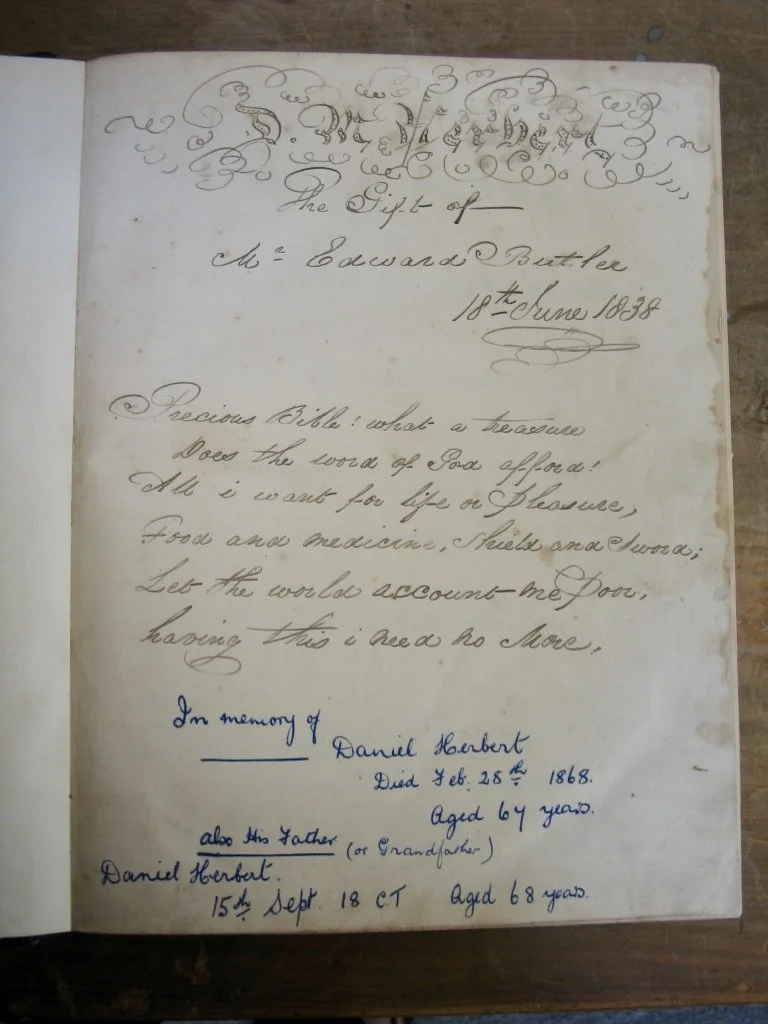 D. Herbert
The Gift of
Mr Edward Butler
18th June 1838
Precious Bible! what a treasure
Does the word of God afford!
All i want for life or Pleasure,
Food and medicine, Shield and Sword;
Let the world account me Poor,
having this i need no More,
In memory of
Daniel Herbert
Died Feb. 28th 1868.
Aged 67 years.
also His Father (or Grandfather)
Daniel Herbert.
15th Sept. 18 C.T Aged 68 years.